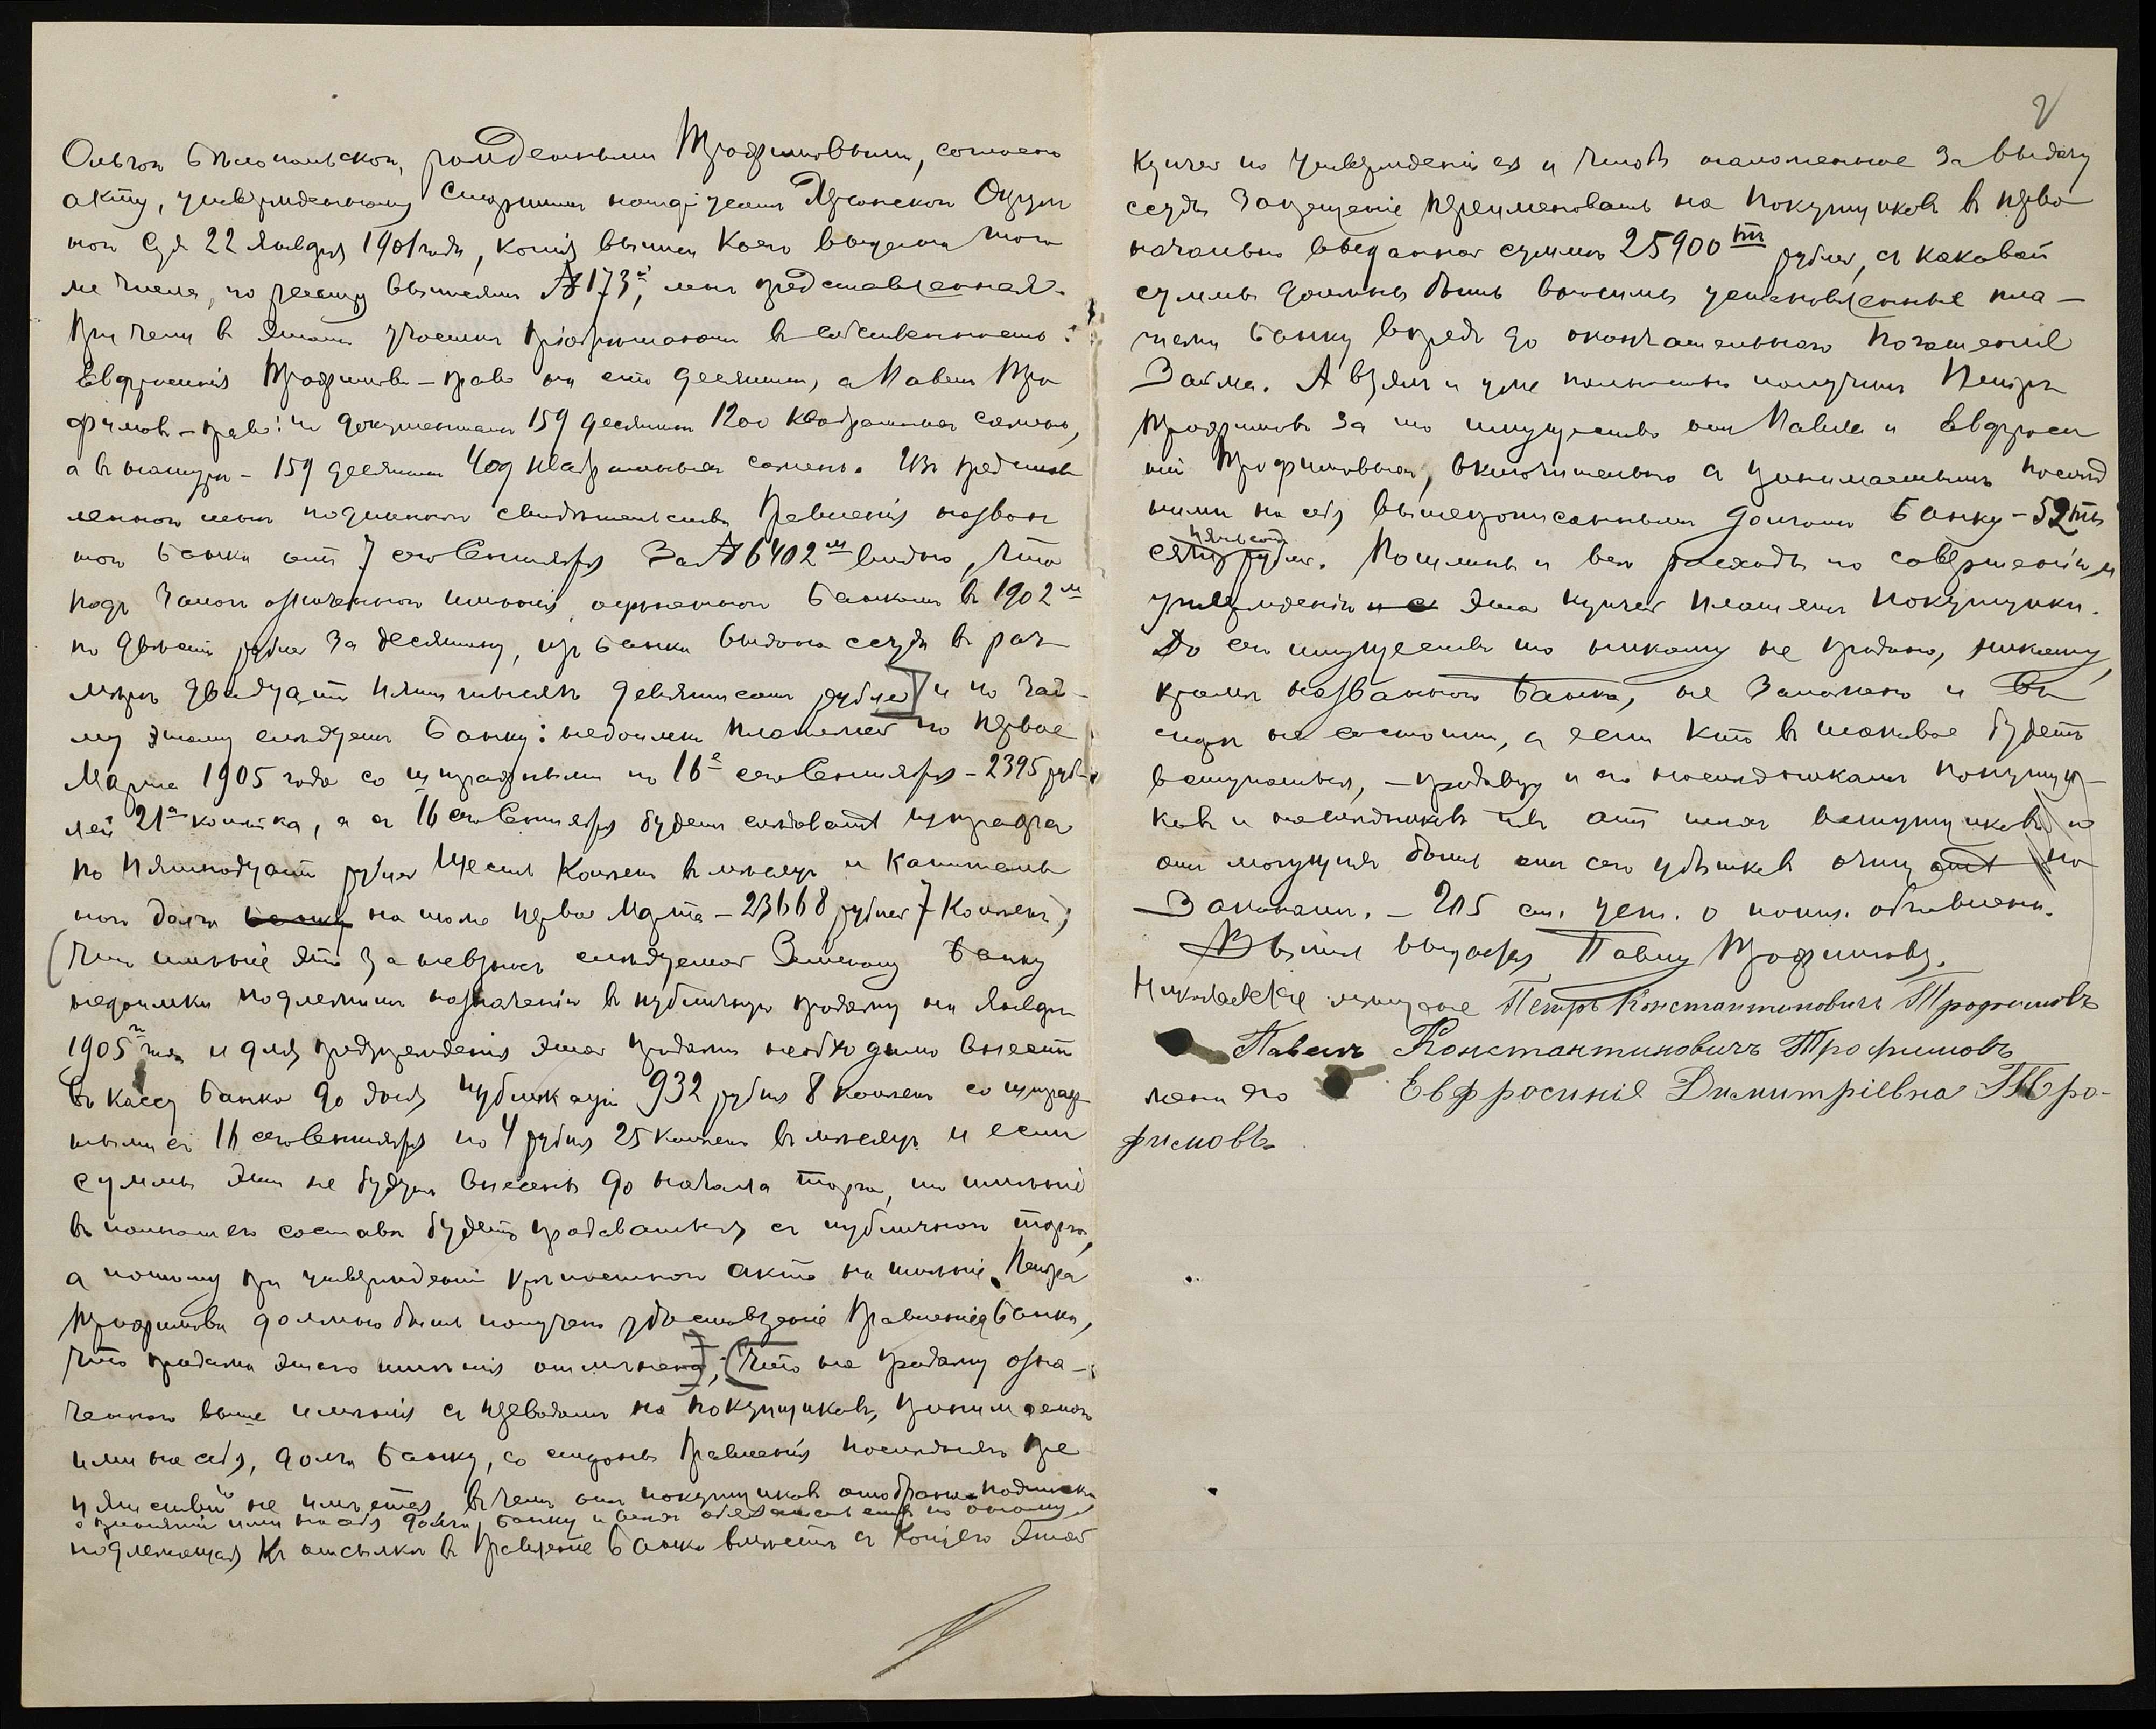 Ольгою Бѣлопольскою, рожденными Трофимовыми, согласно
акту, утвержденному Старшимъ нотаріусомъ Херсонскаго Окруж
наго Суда 22 Января 1901 года, копія выписи коего выдана того
же числа, по реестру выписямъ № 173й, мнѣ представленная.
При чемъ въ этомъ участкѣ пріобрѣтаютъ въ собственность:
Евфросинія Трофимова – право на сто десятинъ, а Павелъ Тро
фимовъ – право: по документамъ 159 десятинъ 1200 квадратныхъ саженъ,
а въ натурѣ – 159 десятинъ 409 квадратныхъ саженъ. Изъ представ
леннаго мнѣ подлиннаго свидѣтельства Правленія назван
наго Банка отъ 7 сего Сентября За № 6402м видно, что
подъ залогъ означеннаго имѣнія, оцѣненнаго Банкомъ въ 1902м
по двѣсти рублей за десятину, изъ Банка выдана ссуда въ раз
мѣрѣ двадцати пяти тысячъ девятисотъ рублей и по зай-
му этому слѣдуетъ Банку: недоимки платежей по первое
Марта 1905 года со штрафными по 16е сего Сентября – 2395 руб
лей 21а копѣйка, а съ 16 сего Сентября будетъ слѣдовать штрафа
по пятнадцати рублей шесть копѣекъ въ мѣсяцъ и капиталь
наго долга Банку на тоже первое Марта – 23668 рублей 7 копѣекъ;
(что имѣніе это за невзносъ слѣдуемой Земельному Банку
недоимки подлежитъ назначенію въ публичную продажу на Январь
1905г года и для предупрежденія этой продажи необходимо внести
въ кассу Банка до дня публикаціи 932 рубля 8 копѣекъ со штраф
ными съ 16 сего Сентября по 4 рубля 25 копѣекъ въ мѣсяцъ и если
суммы эти не будутъ внесены до начала торга, то имѣніе
въ полномъ его составѣ будетъ продаваться съ публичнаго торга,
а потому при утвержденіи крѣпостного акта на имѣніе Петра
Трофимова должно быть получено удостовѣреніе Правленія Банка,
что продажа этого имѣнія отмѣнена); (что на продажу озна-
ченнаго выше имѣнія съ переводомъ на покупщиковъ, принимаемаго
ими на себя, долга Банку, со стороны Правленія послѣдняго пре
пятствій не имѣется, въ чемъ отъ покупщиковъ отобрана подписка
о принятіи ими на себя долга Банку и всѣхъ обязательствъ по оному,
подлежащая къ отсылкѣ въ Правленіе Банка вмѣстѣ съ копіею этой
2
купчей по утвержденіи ея и чтобъ наложенное за выдачу
ссуды запрещеніе переименовать на покупщиковъ въ перво
начально выданной суммѣ 25900тъ рублей, съ каковой
суммы должны быть вносимы установленные пла-
тежи Банку впредь до окончательнаго погашенія
Займа. А взялъ и уже полностью получилъ Петръ
Трофимовъ за то имущество отъ Павла и Евфроси
ніи Трофимовыхъ, включительно съ принимаемымъ послѣд
ними на себя вышепрописаннымъ долгомъ Банку – 52ты
пятьсотъ
сячу рублей. Пошлины и всѣ расходы по совершенію и
утвержденію и с этой купчей платятъ покупщики.
До сего имущество то никому не продано, никому,
кромѣ названнаго Банка, не заложено и въ
спорѣ не состоитъ, а если кто въ таковое будетъ
вступаться, – продавцу и его наслѣдникамъ покупщи-
ковъ и наслѣдниковъ ихъ отъ тѣхъ вступщиковъ и
отъ могущихъ быть отъ сего убытковъ очищать по
Законамъ. – 205 ст. уст. о пошл. объявлена.
Выпись выдать Павлу Трофимову.
Николаевскіе мѣщане Петръ Константиновичъ Трофимовъ
Павелъ Константиновичъ Трофимовъ
жена его Евфросинія Димитріевна Тро-
фимова.